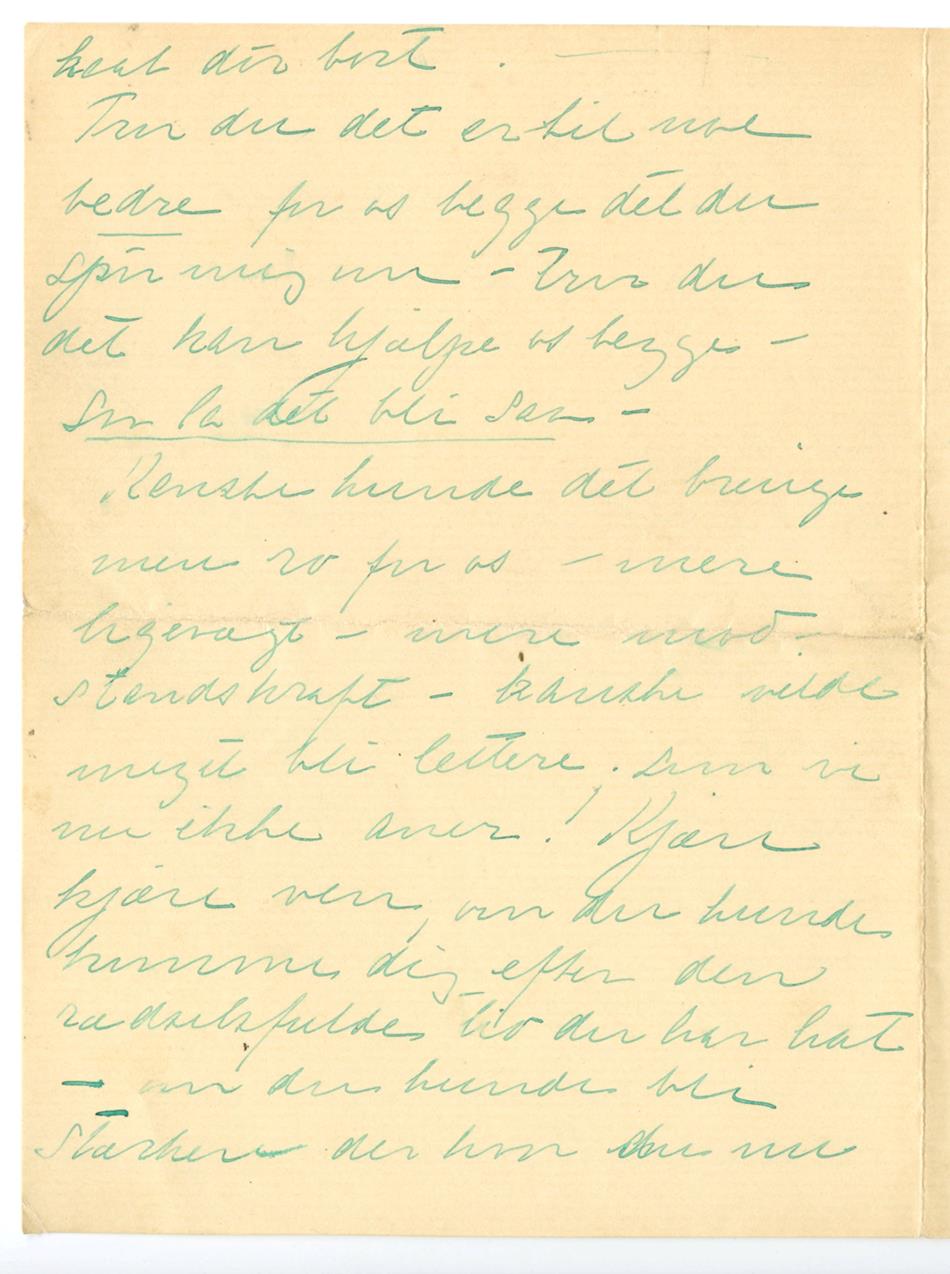 kast dör bort. —
Tror du det er til noe
bedre for os begge det du
spör mig om – Tror du
det kan hjælpe os begge –
saa la det bli saa –
Kanske kunde det bringe
mere ro for os – mere
ligevægt – mere mod-
standskraft – kanske vilde
meget bli lettere, som vi
nu ikke aner! Kjære
kjære ven, om du kunde
komme dig efter den
rædselsfulde tid du har hat
– om du kunde bli
stærkere der hvor du nu